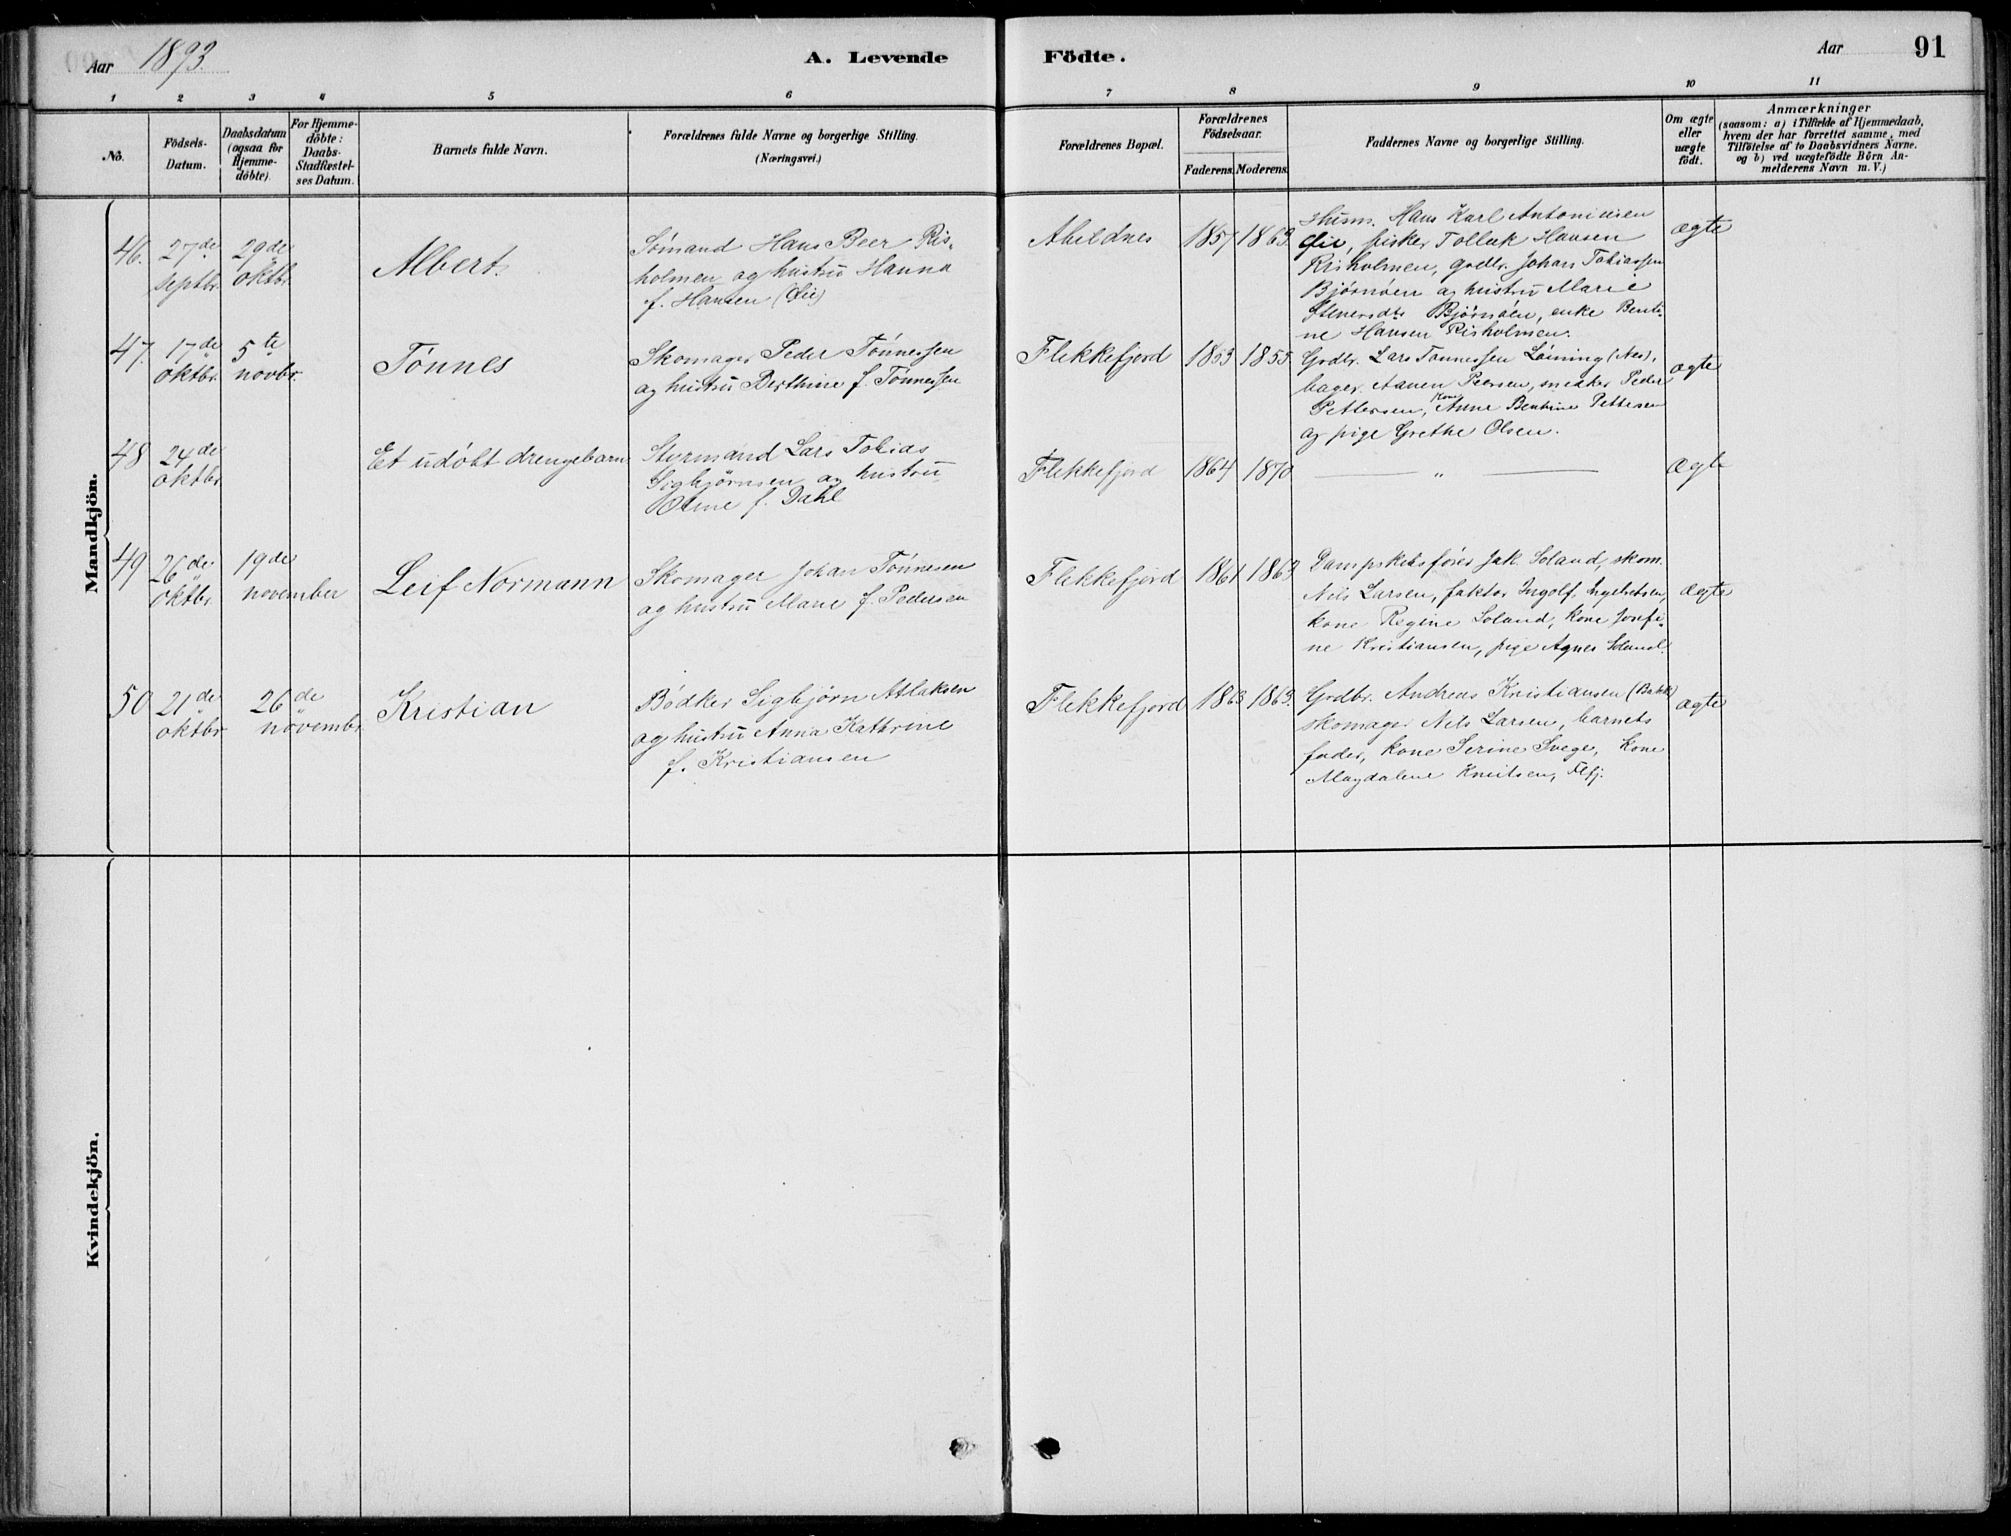 Aar 1893.
A. Levende Födte.
Aar
91
1 2 3 4 5 6 7 8 9 10 11
No.
Födsels-Datum.
Daabsdatum (ogsaa for Hjemme-döbte).
For Hjemme-döbte: Daabs-Stadfæstel-ses Datum.
Barnets fulde Navn.
Forældrenes fulde Navne og borgerlige Stilling.
(Næringsvei.)
Forældrenes Bopæl.
Forældrenes Födselsaar.
Faderens. Moderens.
Faddernes Navne og borgerlige Stilling.
Om ægte eller uægte födt.
Anmærkninger
(saasom: a) i Tilfælde af Hjemmedaab,
hvem der har forrettet samme, med
Tilföielse af to Daabsvidners Navne.
og b) ved uægtefödte Börn An-
melderens Navn m.V.)
Mandkjön.
46. 27de septbr. 29de oktbr.
Albert.
Sømand Hans Beer Ris-
holmen og hustru Hanna
f. Hansen (Øie)
Abeldnes 1857 1863.
Husm. Hans Karl Antonissen
Øie, fisker Tollak Hansen
Risholmen, gadbr. Johan Tobiassen
Bjørnøen og hustru Marie
Bjørnøen, enke Benti-
ne Hansen Risholmen.
ægte
47. 17de oktbr. 5te novbr.
Tønnes
Skomager Peder Tønnessen
og hustru Berthine f. Tønnessen
Flekkefjord 1853 1855.
Grdbr. Lars Tønnessen Løining (Nes),
bager Aanen Peersen, snekker Peder
Pettersen, kone Anne Bentine Pettersen
og pige Grethe Olsen.
ægte
48 24de oktbr.
Et udøbt drengebarn
Styrmand Lars Tobias
Sigbjørnsen og hustru
f. Dahl
Flekkefjord 1864 1870
"
Ægte
49 26de oktbr. 19de november
Leif Normann
Skomager Johan Tønnesen
og hustru Marie f. Pedersen
Flekkefjord 1861 1863
Dampskibsfører Jak. Soland, skom.
Nils Larsen, faktor Ingolf Ingebretsen,
kone Regine Soland, kone Josefi-
ne Kristiansen, pige Agnes Soland.
Ægte
50 21de oktbr 26de novembr.
Kristian
Bødker Sigbjørn Atlaksen
og hustru Anna Kathrine
f. Kristiansen
Flekkefjord 1863 1863.
Grdbr. Andreas Kristiansen
skomager Nils Larsen, barnets
fader, kone Serine Svege, kone
Magdalene Knutsen, Flfj.
ægte
Kvindekjön.